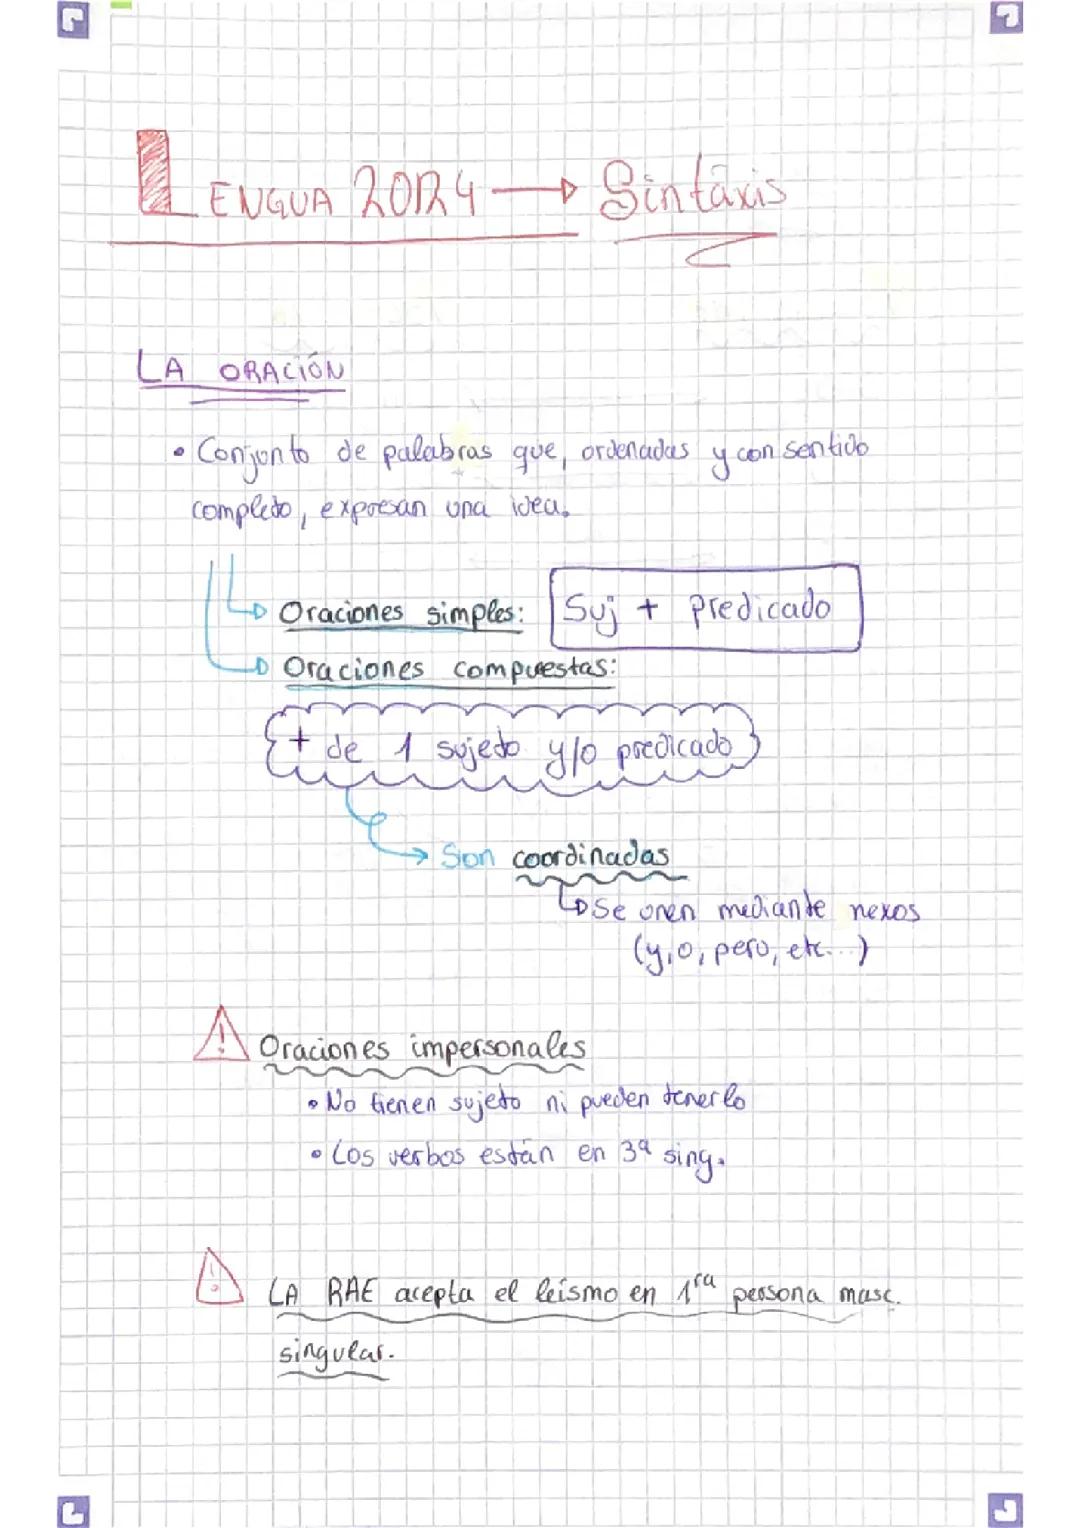 LENGUA 2024 → Sintáxis
LA ORACIÓN
• Conjunto de palabras que, ordenadas y con sentido
completo, expresan una idea.
→ Oraciones simples: Suj + predicado
→ Oraciones compuestas:
+ de 1 sujeto y/o predicado
→ Son coordinadas
→ Se unen mediante nexos
(y, o, pero, etc...)
⚠ Oraciones impersonales
• No tienen sujeto ni pueden tenerlo
• Los verbos están en 3ª sing.
⚠ LA RAE acepta el leísmo en 1ra persona masc.
singular.